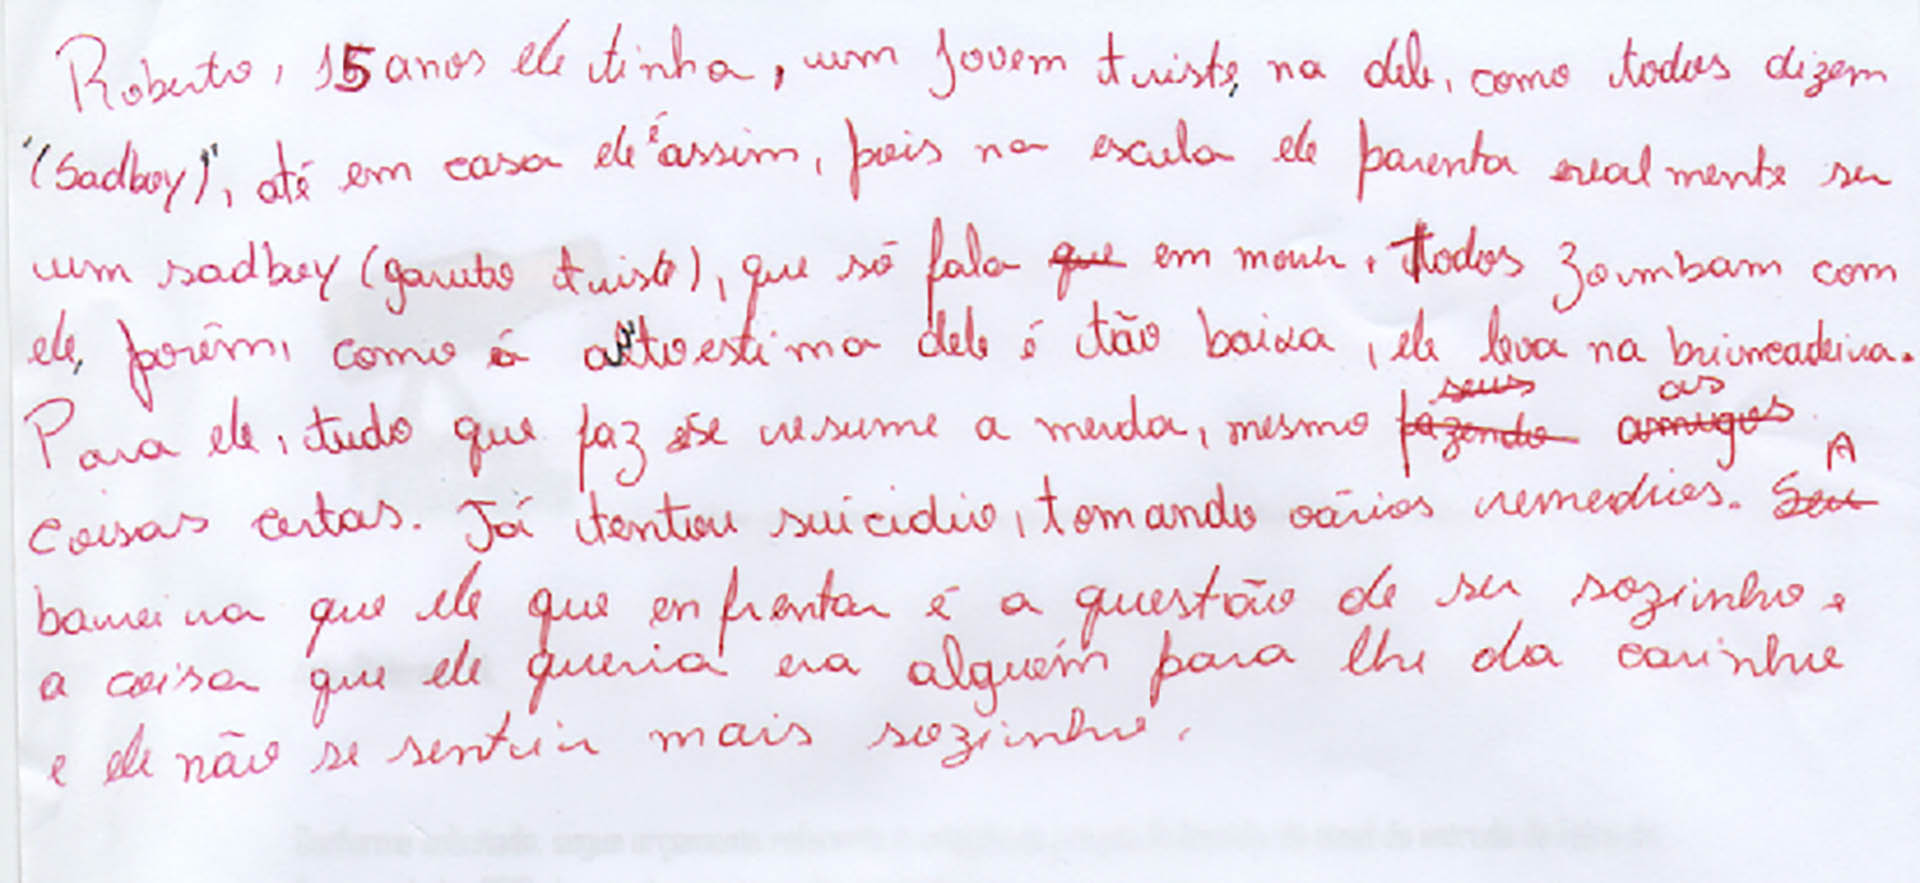 Roberto, 15 anos ele tinha, um jovem triste, na dele, como todos dizem
"(Sadboy)", até em casa ele é assim, pois na escola ele parenta realmente ser
um sadboy (garoto triste), que só fala que em morrer. Todos zombam com
ele, porém, como a autoestima dele é tão baixa, ele leva na brincadeira.
Para ele, tudo que faz se resume a merda, mesmo fazendo seus amigos as
coisas certas. Já tentou suicidio, tomando vários remedios. Seu A
barreira que ele que enfrentar é a questão de ser sozinho e
a coisa que ele queria era alguém para lhe da carinho
e ele não se sentir mais sozinho.